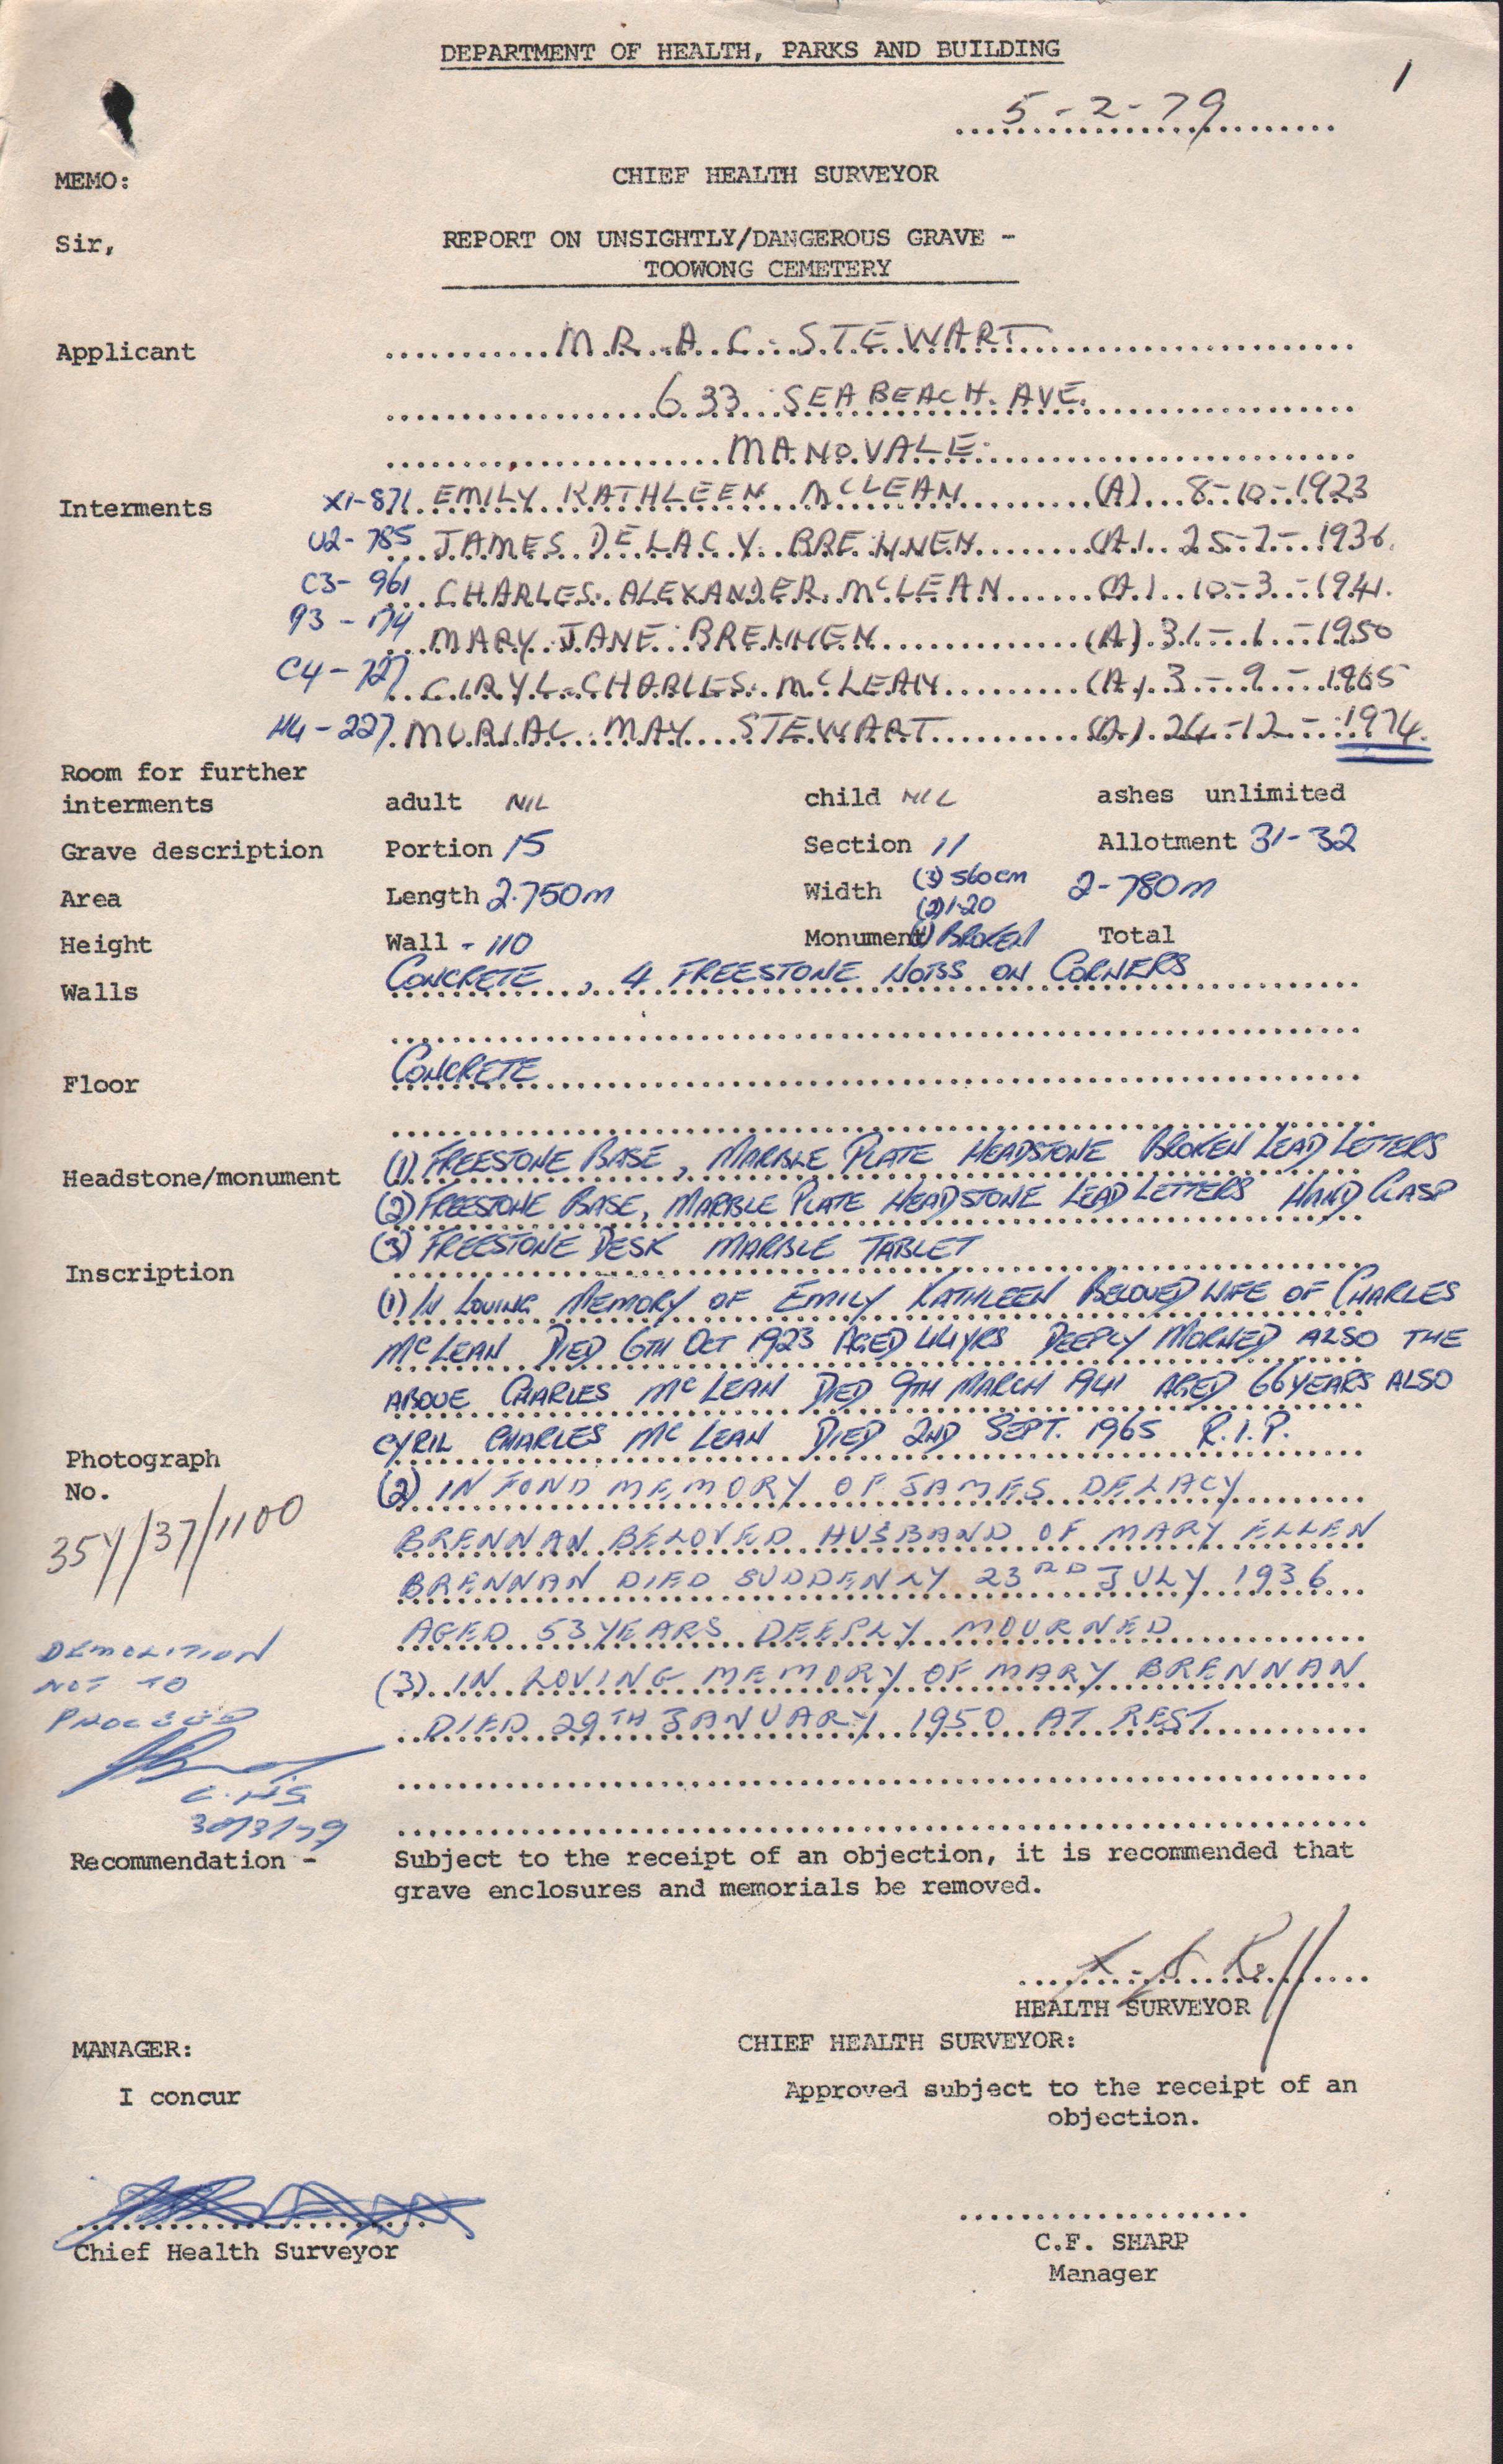 DEPARTMENT OF HEALTH, PARKS AND BUILDING
1
5-2-79
MEMO: CHIEF HEALTH SURVEYOR
Sir, REPORT ON UNSIGHTLY/DANGEROUS GRAVE -
TOOWONG CEMETERY
Applicant MR. A. C. STEWART
633 SEABEACH. AVE.
MANOVALE
Interments X1-871 EMILY KATHLEEN McLEAN (A) 8-10-1923
U2-785 JAMES DELACY BRENNEN (A) 25-7-1936.
C3-961 CHARLES ALEXANDER McLEAN (A) 10-3-1941.
93-174 MARY JANE BRENNEN (A) 31-1-1950
C4-727 CIRYL CHARLES McLEAN (A) 3-9-1965
H4-227 MURIAL MAY STEWART (A) 24-12-1974.
Room for further
interments adult NIL child NIL ashes unlimited
Grave description Portion 15 Section 11 Allotment 31-32
Area Length 2.750m Width (3) 560cm 2-780m
(2) 1.20
Height Wall - 110 Monument (1) BROKEN Total
Walls CONCRETE, 4 FREESTONE NOBS ON CORNERS
Floor CONCRETE
Headstone/monument (1) FREESTONE BASE, MARBLE PLATE HEADSTONE BROKEN LEAD LETTERS
(2) FREESTONE BASE, MARBLE PLATE HEADSTONE LEAD LETTERS HAND CLASP
(3) FREESTONE DESK MARBLE TABLET
Inscription
(1) IN LOVING MEMORY OF EMILY KATHLEEN BELOVED WIFE OF CHARLES
McLEAN DIED 6TH OCT 1923 AGED 44YRS DEEPLY MORNED ALSO THE
ABOVE CHARLES McLEAN DIED 9TH MARCH 1941 AGED 66YEARS ALSO
CYRIL CHARLES McLEAN DIED 2ND SEPT. 1965 R.I.P.
Photograph
No.
354/37/1100
(2) IN FOND MEMORY OF JAMES DELACY
BRENNAN BELOVED HUSBAND OF MARY ELLEN
BRENNAN DIED SUDDENLY 23RD JULY 1936
AGED 53YEARS DEEPLY MOURNED
(3) IN LOVING MEMORY OF MARY BRENNAN
DIED 29TH JANUARY 1950 AT REST
DEMOLITION
NOT TO
PROCEED
C.H.S
30/3/79
Recommendation - Subject to the receipt of an objection, it is recommended that
grave enclosures and memorials be removed.
HEALTH SURVEYOR
MANAGER: CHIEF HEALTH SURVEYOR:
I concur Approved subject to the receipt of an
objection.
Chief Health Surveyor C.F. SHARP
Manager